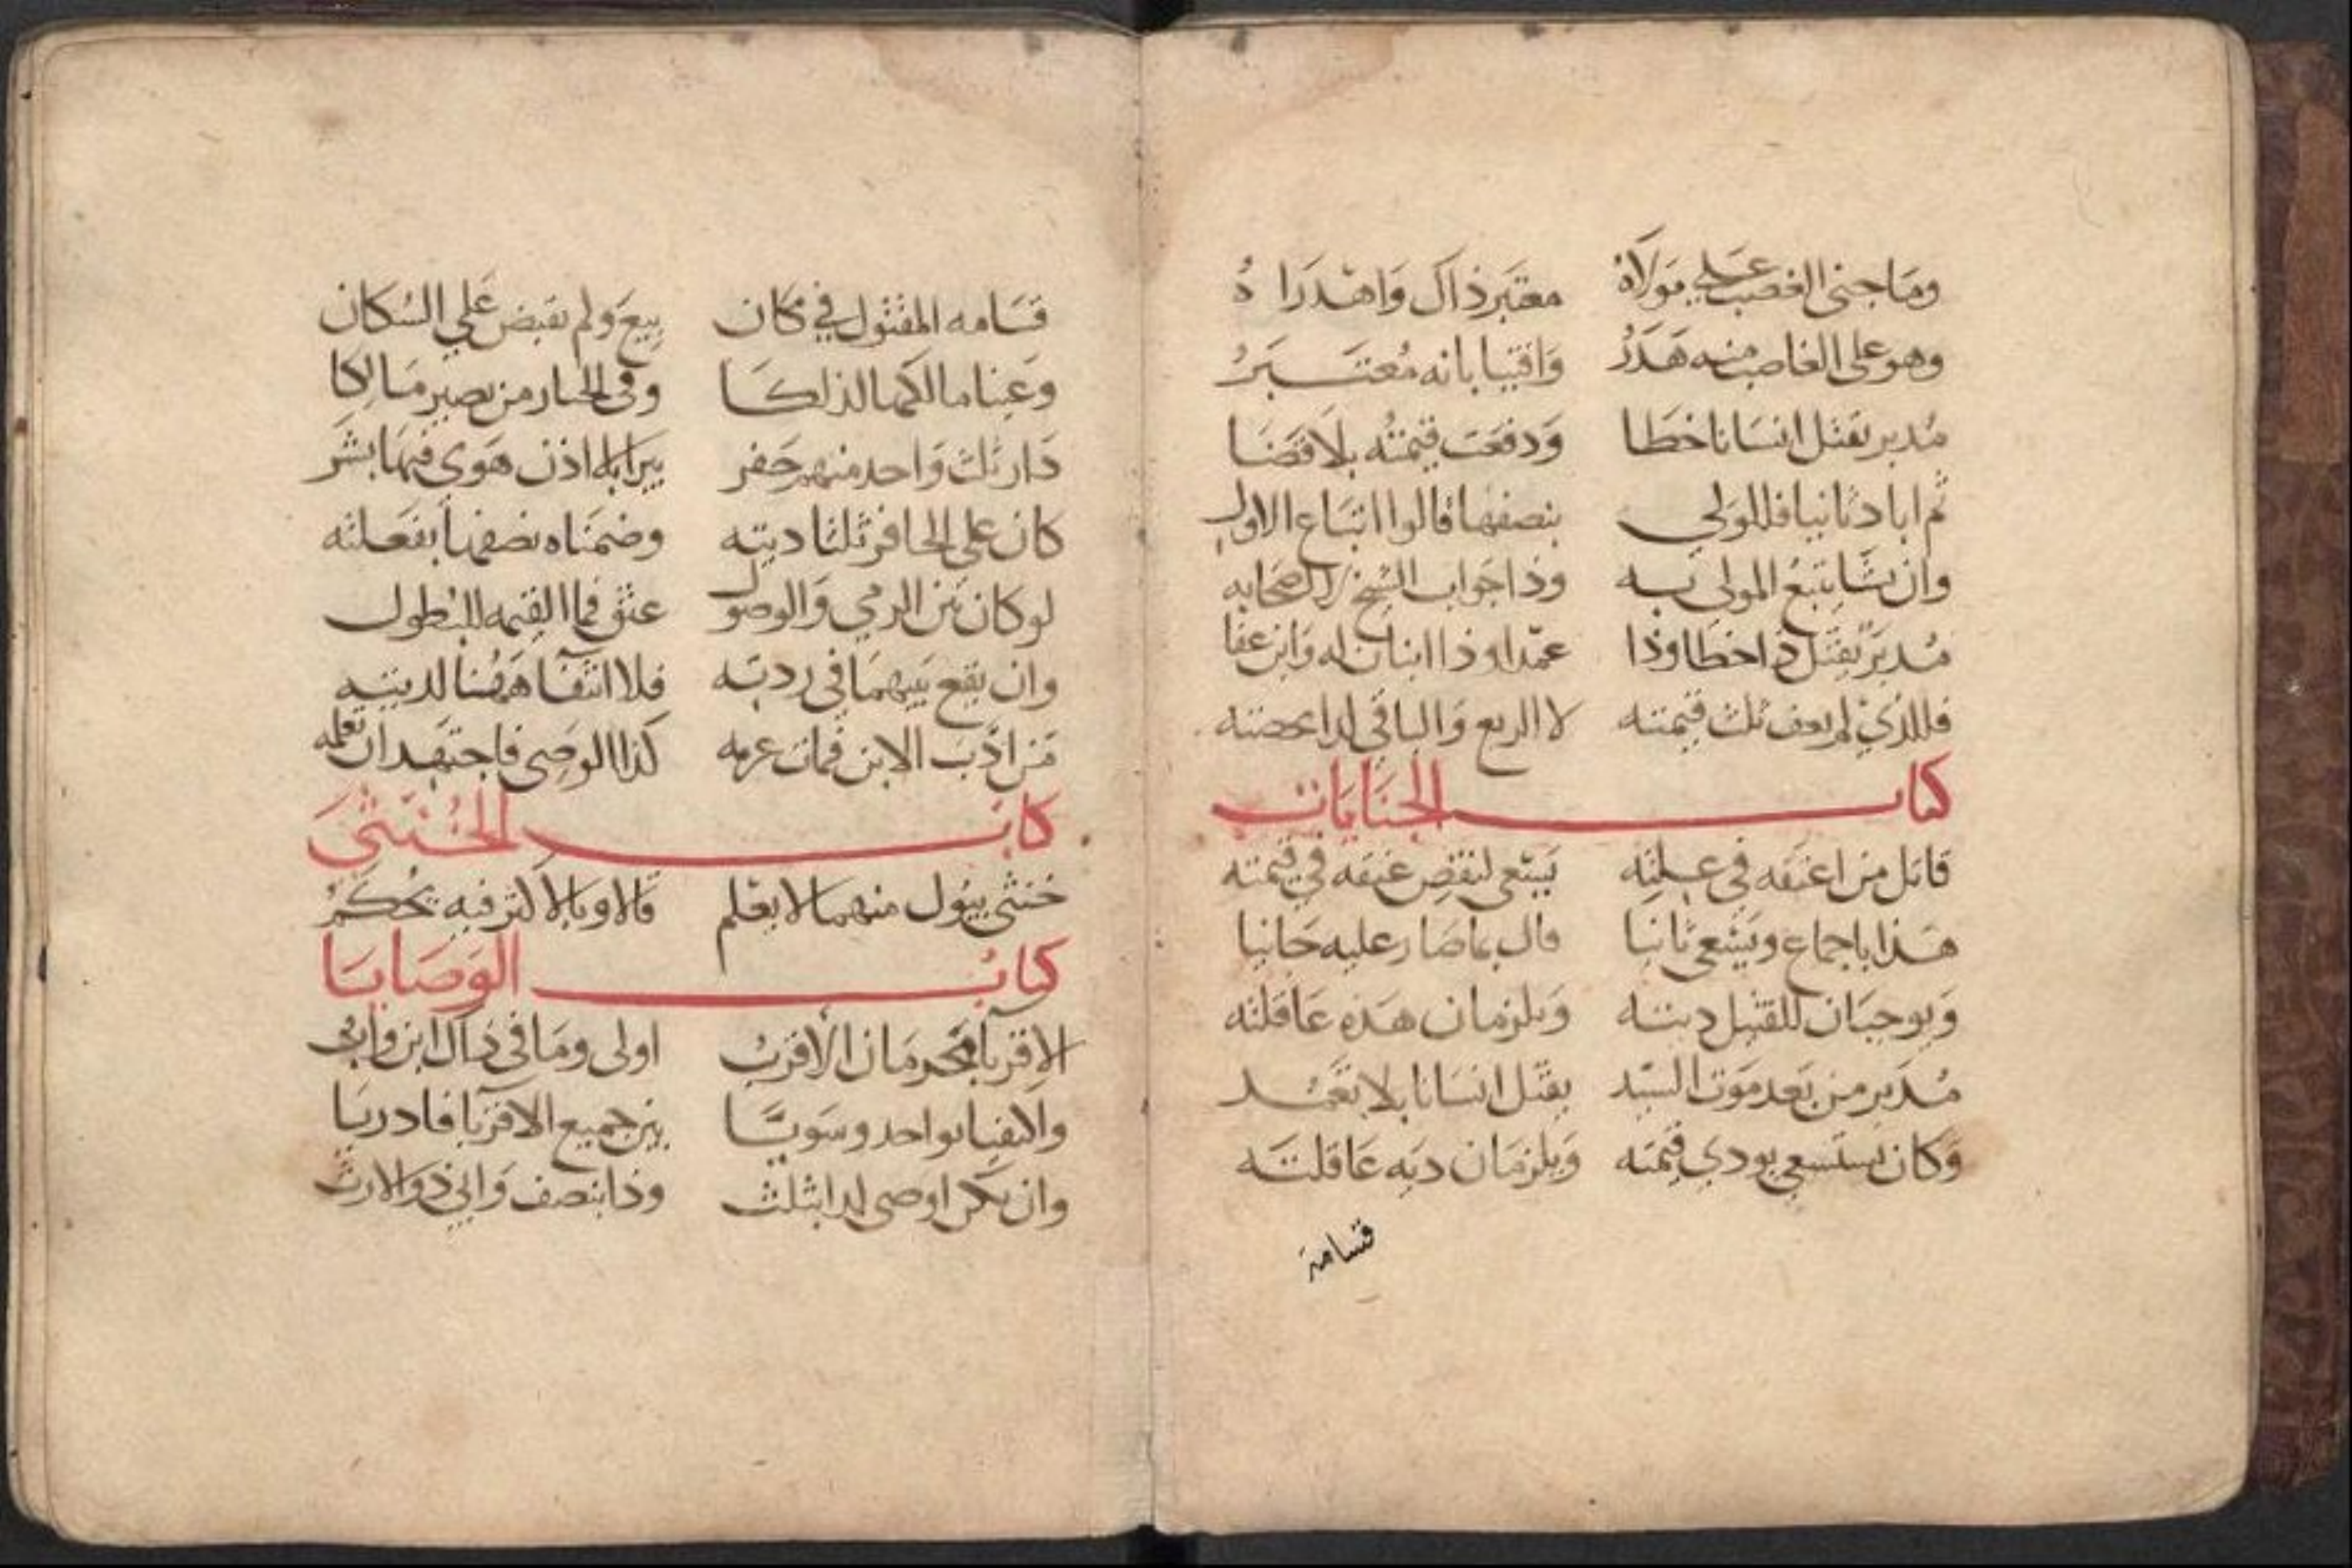 وما جنى الغصب على مولاه معتبر ذاك واهدراه
وهو على الغاصب منه هدر وافتيا بانه معتبر
مدبر يقتل انسانا خطا ودفعت قيمته بلا قضا
ثم اباد ثانيا فللولي بنصفها قالوا اتباع الاول
وان يشا يتبع المولى به وذا جواب الشيخ لا اصحابه
مدبر يقتل ذا خطا وذا عمدا وذا ابنان له وابن عفا
فللذي لم يعف ثلث قيمته لا الربع والباقي لذا بحصته
كتاب الجنايات
قاتل من اعتقه في علته يسعى لنقض عتقه في قيمته
هذا باجماع ويسعى ثانيا قال بما صار عليه جانيا
ويوجبان للقتيل ديته ويلزمان هذه عاقلته
مدبر من بعد موت السيد يقتل انسانا بلا تعمد
وكان يستسعى يودي قيمته ويلزمان ديه عاقلته
قسامة
قسامه المقتول في مكان بيع ولم يقبض على السكان
وعينا مالكها لذلكا وفي الخيار من يصير مالكا
دار ثلث واحد منهم حفر بيرا بلا اذن هوى فيها بشر
كان على الحافر ثلثا ديته وضمناه نصفها بفعلته
لو كان بين الرمي والوصول عتق فما القيمه للبطول
وان يقع بينهما في ردته فلا انتفا ههنا لديته
من ادب الابن فمات غرمه كذا الوصي فاجتهد ان تعلمه
كتاب الخنثى
خنثى يبول منهما لا يعلم قالا وبالاكثر فيه يحكم
كتاب الوصايا
الاقربا محرمان الاقرب اولى وما في ذاك ابن واب
والاكتفيا بواحد وسويا بين جميع الاقربا فادريا
وان يكن اوصى لذا بثلث وذا بنصف وابي ذو الارث